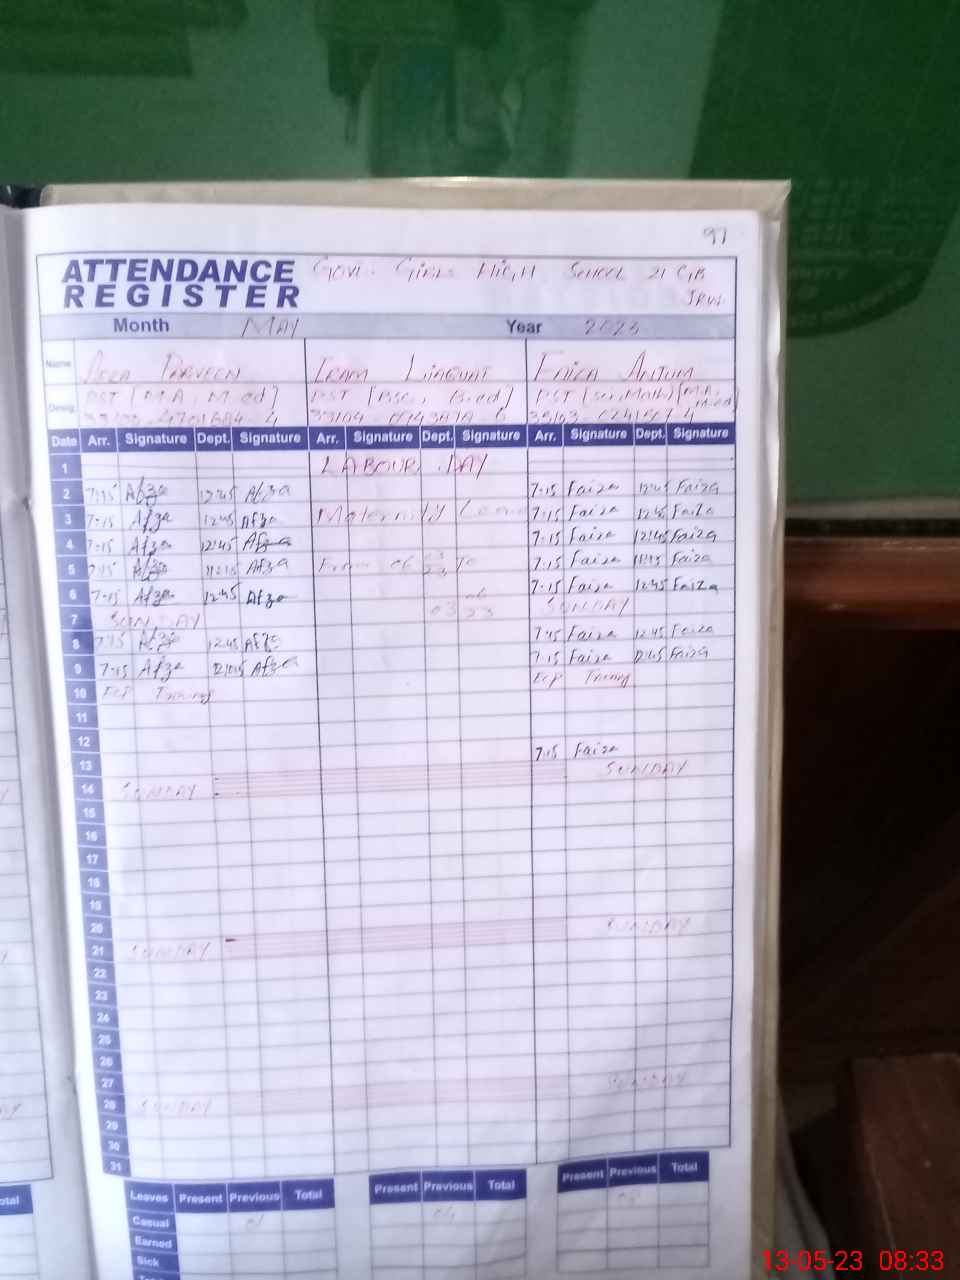 97
ATTENDANCE REGISTER
Govt. Girls High School 21 GB
Month MAY Year 2023
Name PARVEEN IRAM LIAQUAT FAIZA ANJUM
Desig. PST [M.A, M.ed] PST [Bsc, B.ed] PST (Sci, Math) [M.A, M.ed]
Date Arr. Signature Dept. Signature Arr. Signature Dept. Signature Arr. Signature Dept. Signature
1 LABOUR DAY
2 7:15 Afza 12:45 Afza 7:15 Faiza 12:45 Faiza
3 7:15 Afza 12:45 Afza Maternity Leave 7:15 Faiza 12:45 Faiza
4 7:15 Afza 12:45 Afza 7:15 Faiza 12:45 Faiza
5 7:15 Afza Afza From 06 03 23 To 7:15 Faiza Faiza
6 7:15 Afza 12:45 Afza 03 06 23 7:15 Faiza 12:45 Faiza
7 SUNDAY SUNDAY
8 7:15 Afza 12:45 Afza 7:15 Faiza 12:45 Faiza
9 7:15 Afza 12:45 Afza 7:15 Faiza 12:45 Faiza
10 Training Training
11
12
13 7:15 Faiza
14 SUNDAY SUNDAY
15
16
17
18
19
20
21 SUNDAY SUNDAY
22
23
24
25
26
27
28 SUNDAY SUNDAY
29
30
31
Leaves Present Previous Total Present Previous Total Present Previous Total
Casual 01 04 08
Earned
Sick
13-05-23 08:33